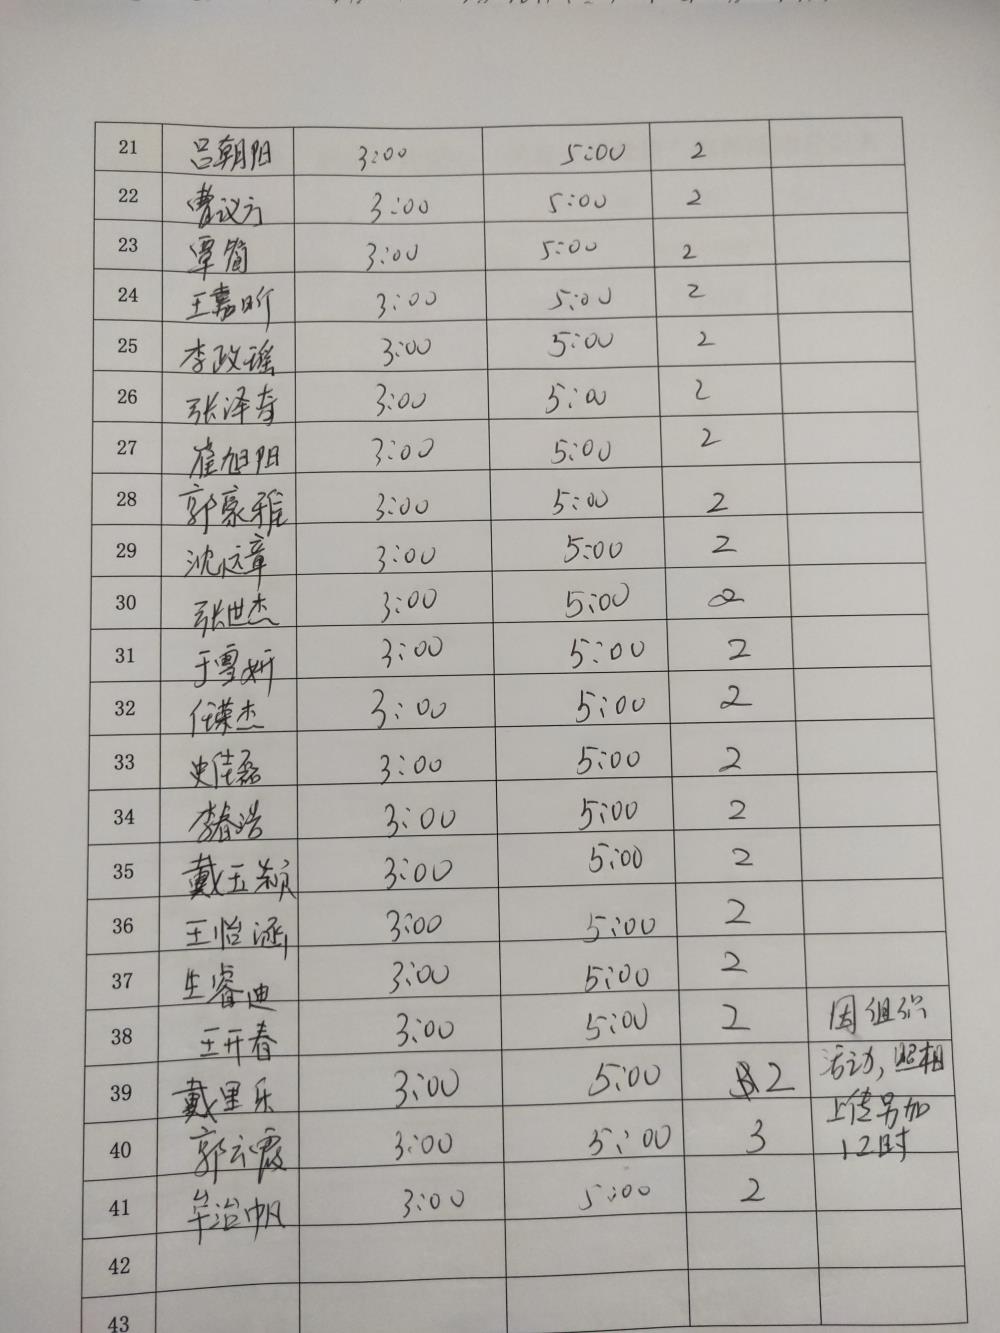 21 吕朝阳 3:00 5:00 2
22 曹议方 3:00 5:00 2
23 覃简 3:00 5:00 2
24 王嘉昕 3:00 5:00 2
25 李政瑶 3:00 5:00 2
26 张泽寿 3:00 5:00 2
27 崔旭阳 3:00 5:00 2
28 郭家雅 3:00 5:00 2
29 沈 章 3:00 5:00 2
30 张世杰 3:00 5:00 2
31 于雪妍 3:00 5:00 2
32 任荣杰 3:00 5:00 2
33 史佳磊 3:00 5:00 2
34 李春浩 3:00 5:00 2
35 戴玉颖 3:00 5:00 2
36 王怡涵 3:00 5:00 2
37 生睿迪 3:00 5:00 2
38 王开春 3:00 5:00 2 因组织
39 戴里乐 3:00 5:00 2 活动,照相
40 郭云霞 3:00 5:00 3 上传另加
1小时
41 牟治帆 3:00 5:00 2
42
43